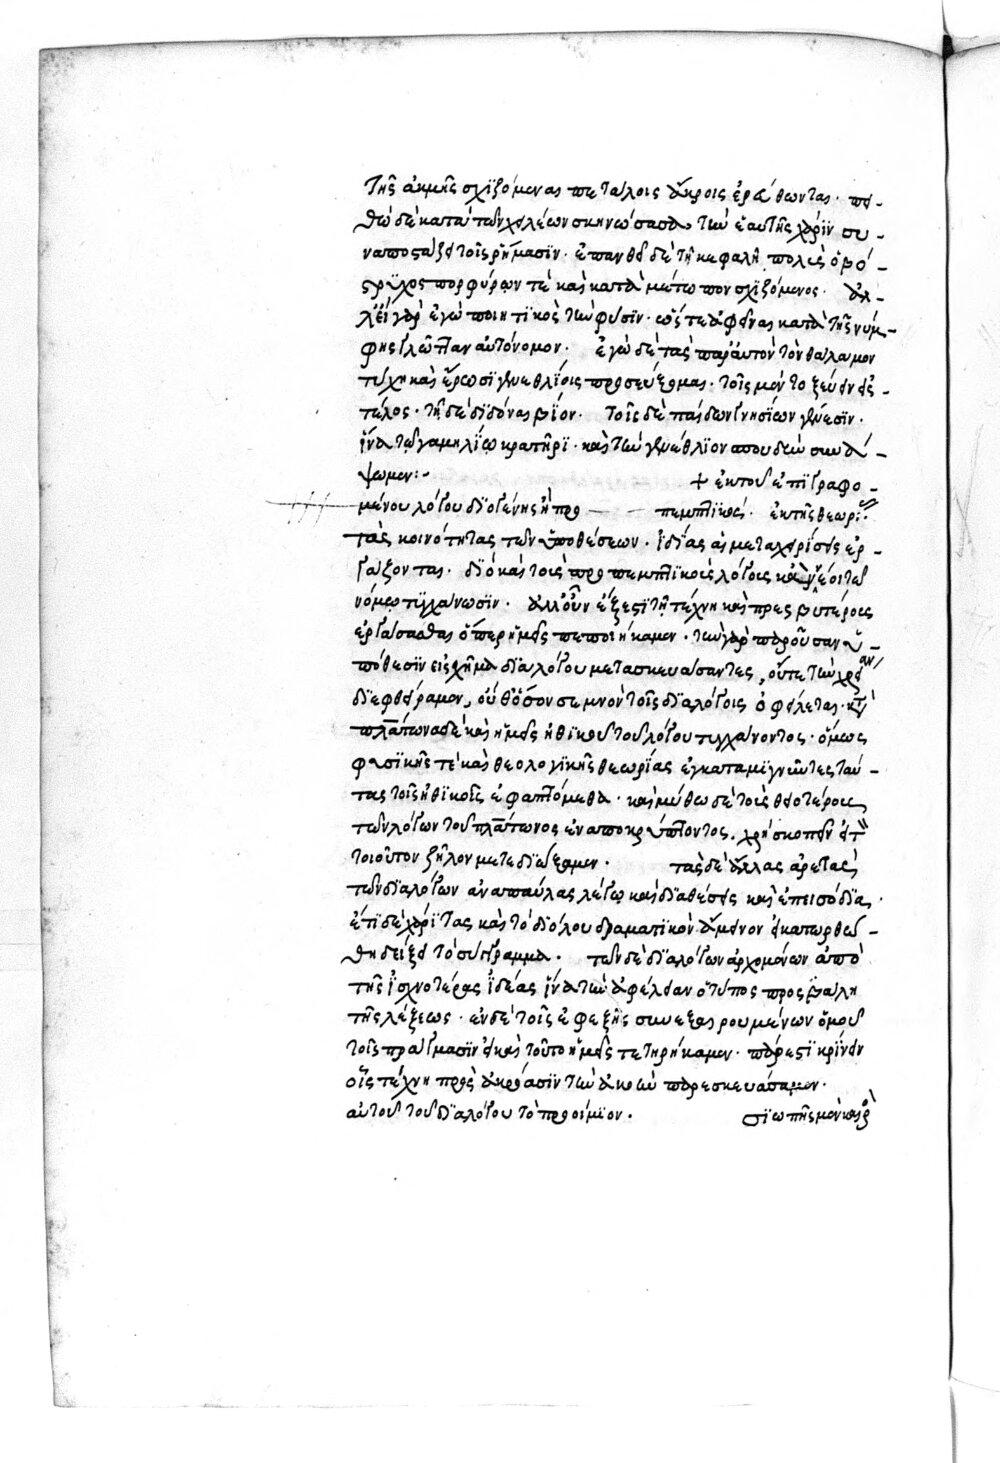 τῆς ἀκμῆς σχιζόμεναι πετάλοις ἄκροις ἐρυθαίνονται. πει-
θὼ δὲ κατὰ τῶν χειλέων σκηνώσασα, τὴν ἑαυτῆς χάριν συ-
ναποστάζει τοῖς ῥήμασιν. ἐπανθεῖ δὲ τῇ κεφαλῇ πολὺς ὁ βό-
στρυχος πορφύρων τὲ καὶ κατὰ μέτωπον σχιζόμενος. ἀλ-
λ' εἰ γὰρ ἐγὼ ποιητικὸς τὴν φύσιν. ὥστε ἀφεῖναι κατὰ τῆς νύμ-
φης γλῶτταν αὐτόνομον. ἐγὼ δὲ παρ' αὐτὸν τὸν θάλαμον
τύχῃ καὶ ἔρωσι γενεθλίοις προσεύξομαι. τοῖς μὲν τοξεύειν ἐς
τέλος. τῇ δὲ διδόναι βίον. τοῖς δὲ παίδων γνησίων γένεσιν.
ἵνα τῷ γαμηλίῳ κρατῆρι. καὶ τὴν γενέθλιον σπονδὴν συνά-
ψωμεν:- + ἐκ τοῦ ἐπιγραφο-
μένου λόγου διογένης ἢ προ — — πεμπτικός. ἐκ τῆς θεωρί:
τὰς κοινότητας τῶν ὑποθέσεων. ἰδίας αἱ μεταχειρίσεις ἐρ-
γάζονται. διὸ καὶ τοῖς προπεμπτικοῖς λόγοις καὶ νέοι τῷ
νόμῳ τυγχάνωσιν. ἀλλ' οὖν ἔξεστι τῇ τέχνῃ καὶ πρεσβυτέροις
ἐργάσασθαι ὅπερ ἡμεῖς πεποιήκαμεν. τὴν γὰρ παροῦσαν ὑ-
πόθεσιν εἰς σχῆμα διαλόγου μετασκευάσαντες, οὔτε τὴν χρείαν
διεφθείραμεν, οὔθ' ὅσον σεμνὸν τοῖς διαλόγοις ὀφείλεται. κατὰ
πλάτωνα δὲ καὶ ἡμεῖς ἠθικοῦ τοῦ λόγου τυγχάνοντος. ὅμως
φυσικῆς τὲ καὶ θεολογικῆς θεωρίας ἐγκαταμιγνῦντες ταύ-
τας τοῖς ἠθικοῖς ἐφαπτόμεθα. καὶ μύθῳ δὲ τοὺς θειοτέρους
τῶν λόγων τοῦ πλάτωνος ἐναποκρύπτοντος. χρὴ σκοπεῖν εἰ τ
τοιοῦτον ζῆλον μετεδιώξαμεν. τὰς δὲ ἄλλας ἀρετὰς
τῶν διαλόγων ἀναπαύλας λέγω καὶ διαθέσεις καὶ ἐπεισόδια.
ἔτι δὲ χάριτας καὶ τὸ διόλου δραματικὸν ἄμεινον εἰ κατωρθώ-
θη δείξει τὸ σύγγραμμα. τῶν δὲ διαλόγων ἀρχομένων ἀπὸ
τῆς ἰσχνοτέρας ἰδέας ἵνα τὴν ἀφέλειαν ὁ τύπος προσβάλῃ
τῆς λέξεως. ἐν δὲ τοῖς ἐφεξῆς συνεξαιρουμένων ὁμοῦ
τοῖς πράγμασιν εἰ καὶ τοῦτο ἡμεῖς τετηρήκαμεν. πάρεστι κρίνειν
οἷς τέχνη πρὸς ἀκρόασιν τὴν ἀκοὴν παρεσκευάσαμεν.
αὐτοῦ τοῦ διαλόγου τὸ προοίμιον. σιωπῆς μὲν καιρὸς